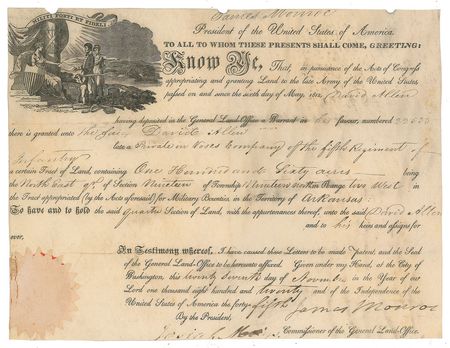 James Monroe
President of the United States of America.
MILITI FORTI ET FIDELI
TO ALL TO WHOM THESE PRESENTS SHALL COME, GREETING:
Know Ye, That, in pursuance of the Acts of Congress
appropriating and granting Land to the late Army of the United States
passed on and since the sixth day of May, 1812, David Allen
having deposited in the General Land-Office a Warrant in his favour, numbered
there is granted unto the said David Allen
late a Private in Company of the fifth Regiment of
Infantry
a certain Tract of Land, containing One Hundred and Sixty acres being
the North East qr. of Section Nineteen of Township Nineteen North in Range two West in
the Tract appropriated (by the Acts aforesaid) for Military Bounties in the Territory of Arkansas:
To have and to hold the said Quarter Section of Land, with the appurtenances thereof, unto the said David Allen
and to his heirs and assigns for
ever.
In Testimony whereof, I have caused these Letters to be made Patent, and the Seal
of the General Land-Office to be hereunto affixed. Given under my Hand, at the City of
Washington, this twenty seventh day of November in the Year of our
Lord one thousand eight hundred and twenty and of the Independence of the
United States of America the forty-fifth
James Monroe
By the President,
Commissioner of the General Land-Office.